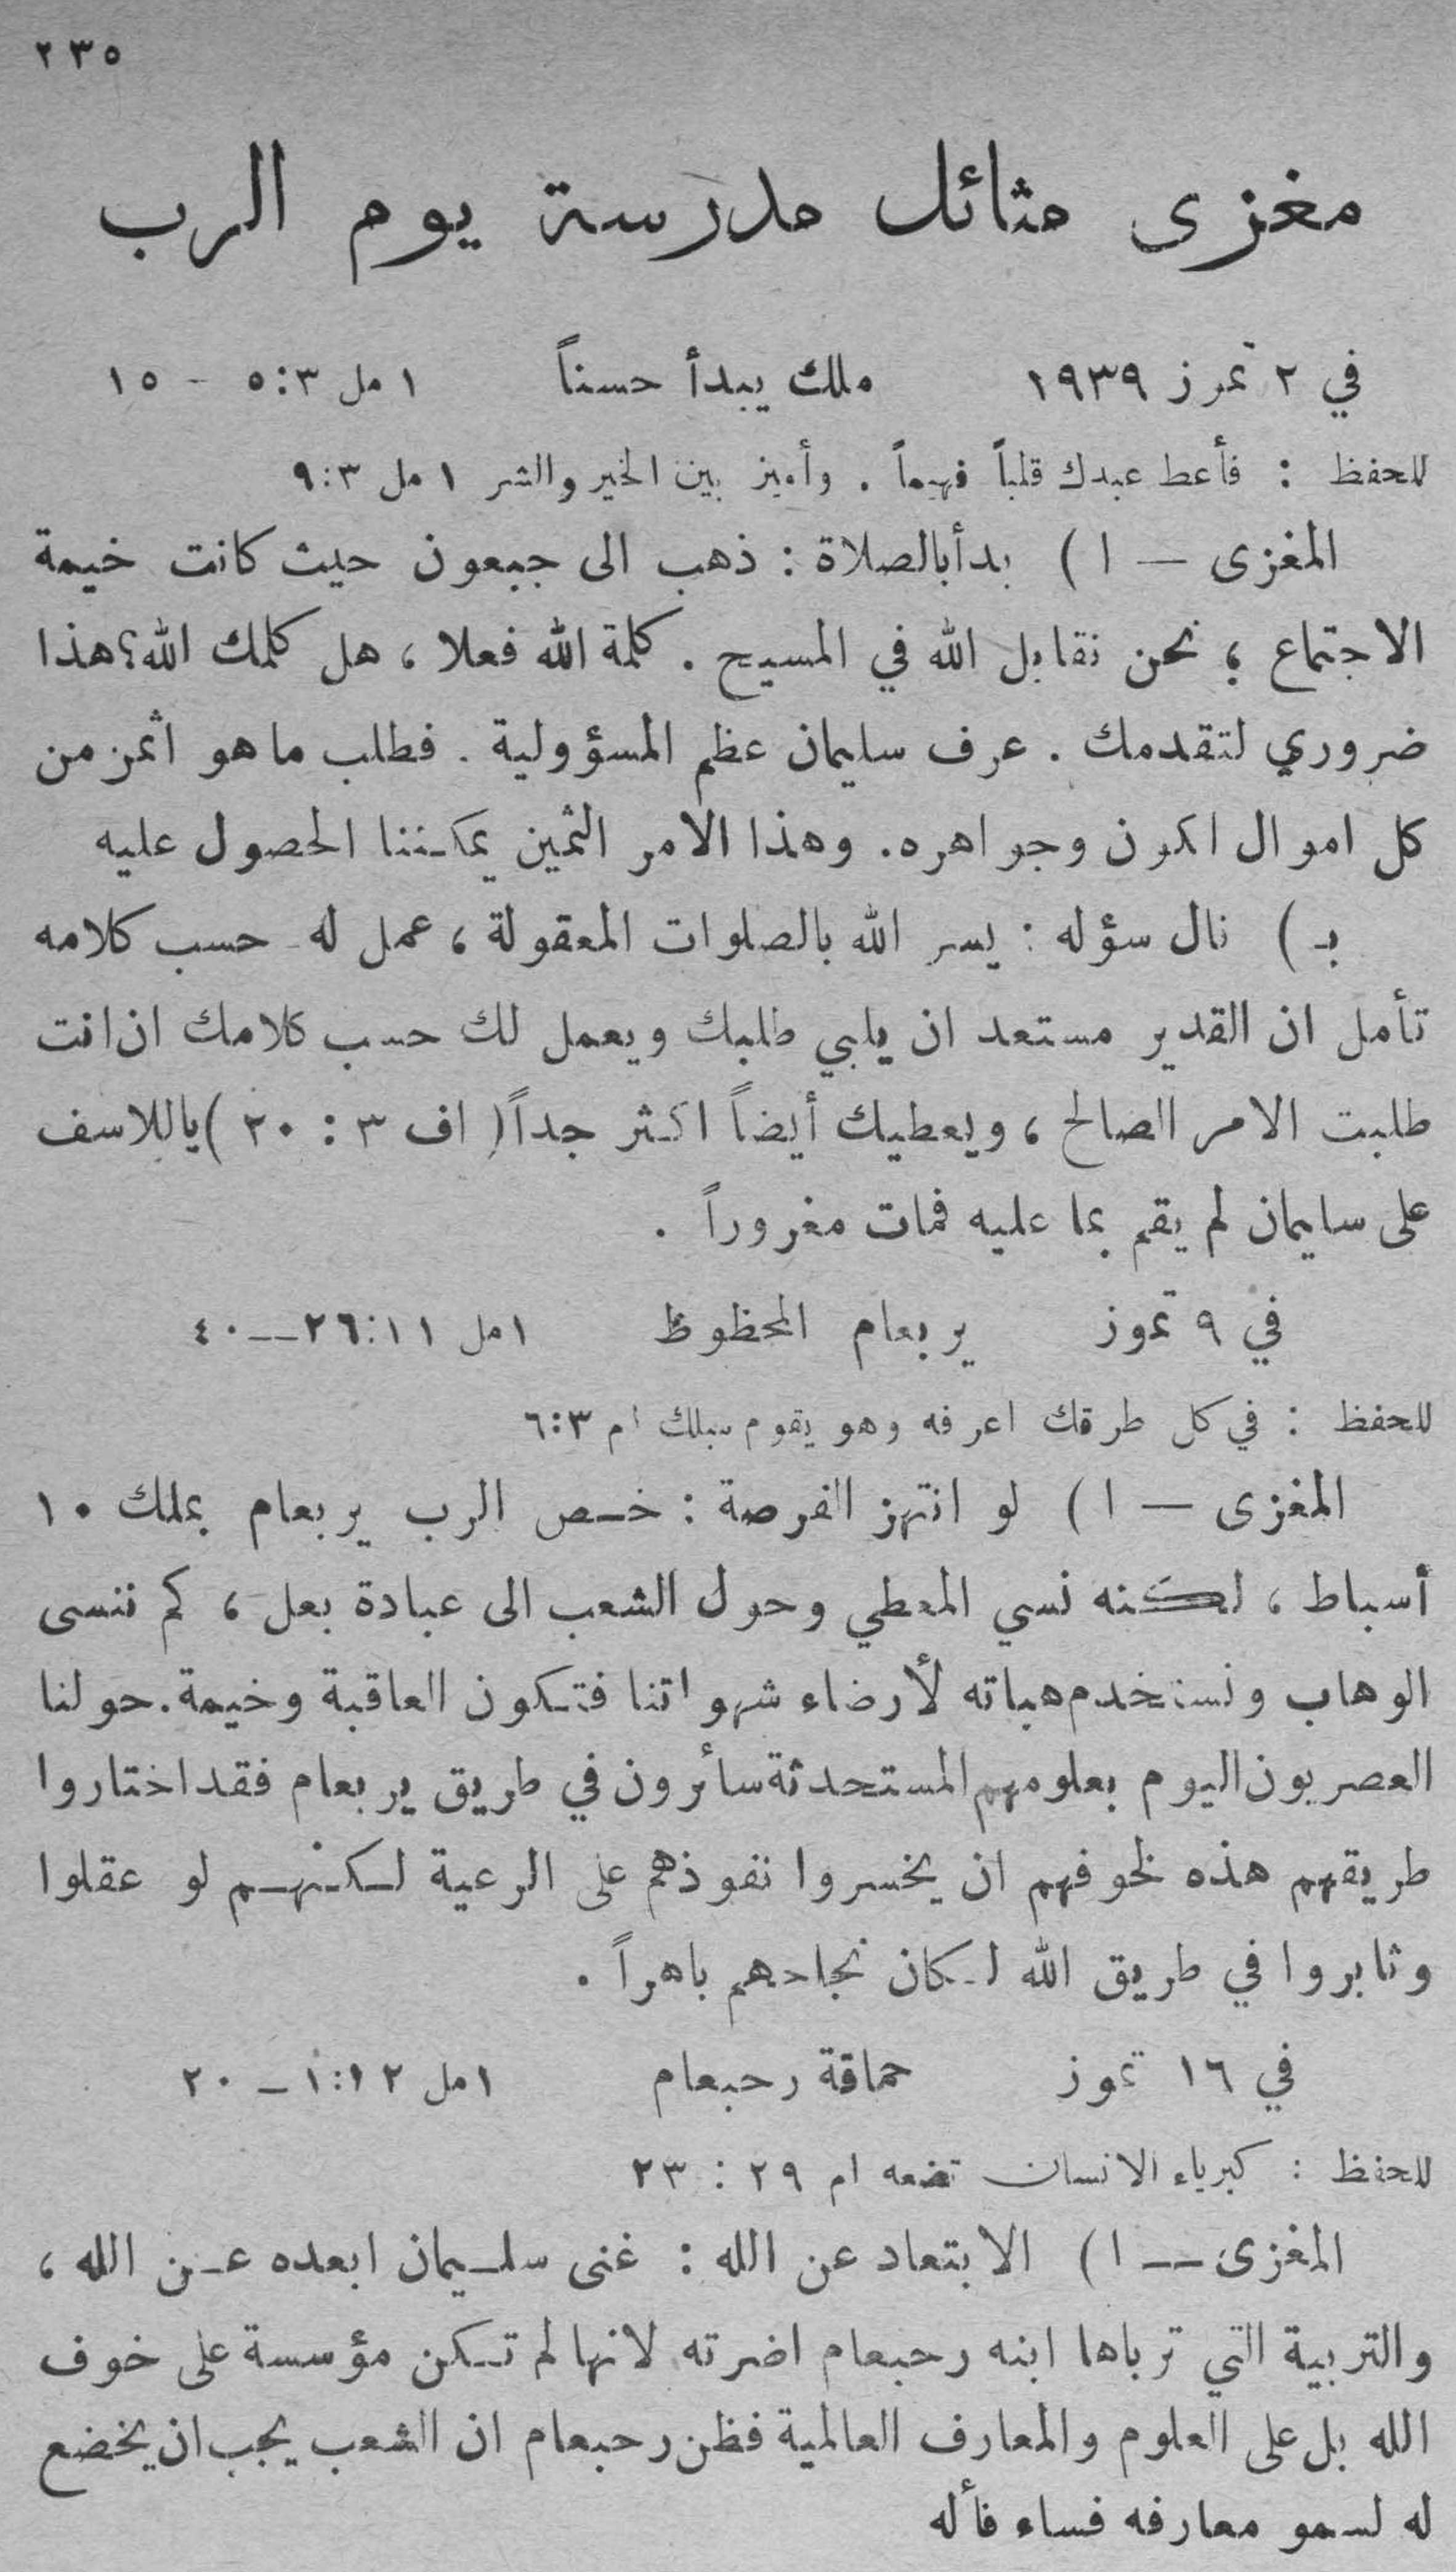 ٢٣٥
مغزى مثائل مدرسة يوم الرب
في ٢ تموز ١٩٣٩ ملك يبدأ حسناً ١ مل ٣:٥ - ١٥
للحفظ : فأعط عبدك قلباً فهيماً . وأميز بين الخير والشر ١ مل ٩:٣
المغزى — ا ) بدأ بالصلاة : ذهب الى جبعون حيث كانت خيمة
الاجتماع ؛ نحن نقابل الله في المسيح . كلمة الله فعلا ، هل كلمك الله؟ هذا
ضروري لتقدمك . عرف سليمان عظم المسؤولية . فطلب ما هو اثمن من
كل اموال الكون وجواهره. وهذا الامر الثمين يمكننا الحصول عليه
بـ ) نال سؤله : يسر الله بالصلوات المعقولة ، عمل له حسب كلامه
تأمل ان القدير مستعد ان يلبي طلبك ويعمل لك حسب كلامك ان انت
طلبت الامر الصالح ، ويعطيك أيضاً اكثر جداً ( اف ٣ : ٢٠ ) ياللاسف
على سليمان لم يقم بما عليه فمات مغروراً .
في ٩ تموز يربعام المحظوظ ١ مل ٢٦:١١—٤٠
للحفظ : في كل طرقك اعرفه وهو يقوم سبلك ام ٦:٣
المغزى — ا ) لو انتهز الفرصة : خص الرب يربعام بملك ١٠
أسباط ، لكنه نسي المعطي وحول الشعب الى عبادة بعل ، كم ننسى
الوهاب ونستخدم هباته لأرضاء شهواتنا فتكون العاقبة وخيمة. حولنا
العصريون اليوم بعلومهم المستحدثة سائرون في طريق يربعام فقد اختاروا
طريقهم هذه لخوفهم ان يخسروا نفوذهم على الرعية لكنهم لو عقلوا
وثابروا في طريق الله لكان نجاحهم باهراً .
في ١٦ تموز حماقة رحبعام ١ مل ١:١٢ — ٢٠
للحفظ : كبرياء الانسان تضعه ام ٢٩ : ٢٣
المغزى — ا ) الابتعاد عن الله : غنى سليمان ابعده عن الله ،
والتربية التي ترباها ابنه رحبعام اضرته لانها لم تكن مؤسسة على خوف
الله بل على العلوم والمعارف العالمية فظن رحبعام ان الشعب يجب ان يخضع
له لسمو معارفه فساء فأله